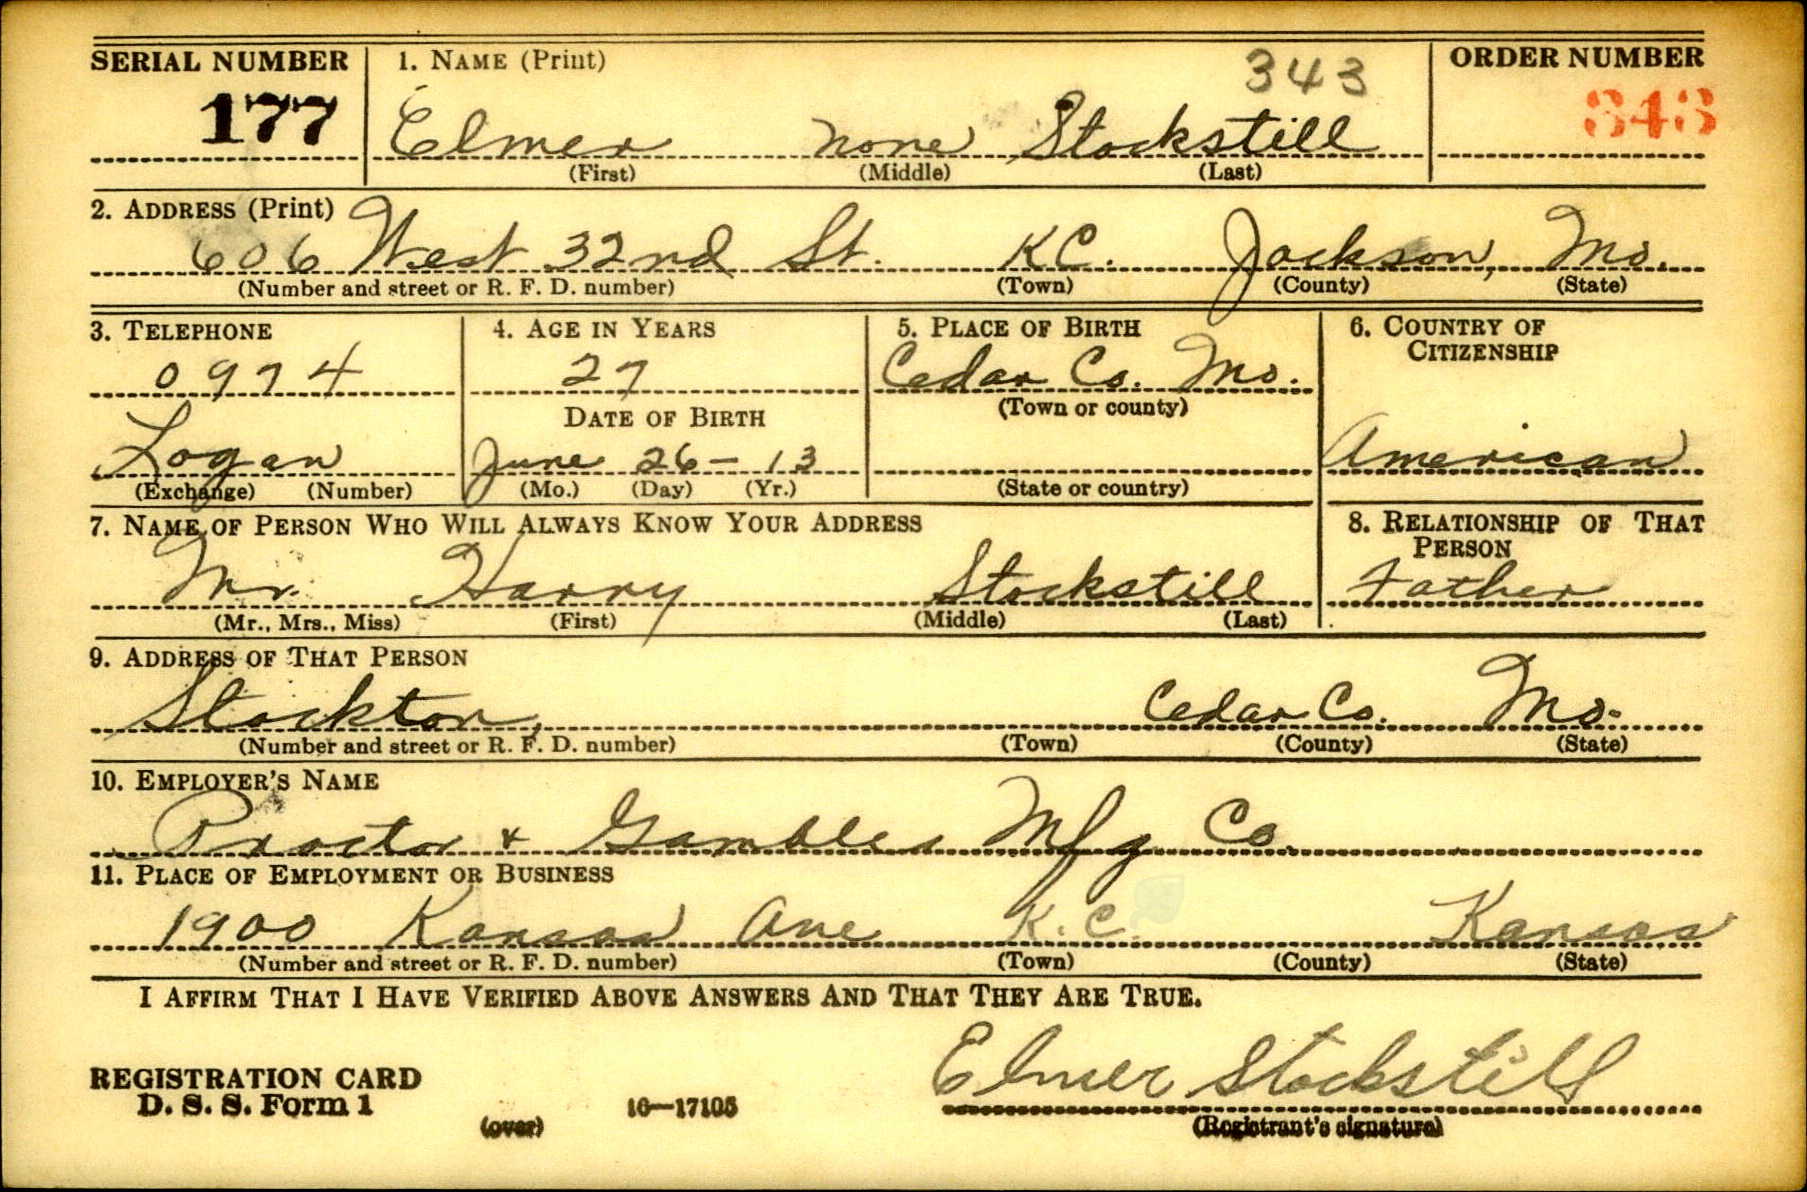 SERIAL NUMBER 1. NAME (Print) 343 ORDER NUMBER
177 Elmer none Stockstill 343
(First) (Middle) (Last)
2. ADDRESS (Print)
606 West 32nd St. K.C. Jackson, Mo.
(Number and street or R. F. D. number) (Town) (County) (State)
3. TELEPHONE 4. AGE IN YEARS 5. PLACE OF BIRTH 6. COUNTRY OF CITIZENSHIP
0974 27 Cedar Co. Mo.
DATE OF BIRTH (Town or county)
Logan June 26-13 American
(Exchange) (Number) (Mo.) (Day) (Yr.) (State or country)
7. NAME OF PERSON WHO WILL ALWAYS KNOW YOUR ADDRESS 8. RELATIONSHIP OF THAT PERSON
Mr. Harry Stockstill Father
(Mr., Mrs., Miss) (First) (Middle) (Last)
9. ADDRESS OF THAT PERSON
Stockton, Cedar Co. Mo.
(Number and street or R. F. D. number) (Town) (County) (State)
10. EMPLOYER'S NAME
Proctor & Gambles Mfg Co.
11. PLACE OF EMPLOYMENT OR BUSINESS
1900 Kansas Ave K.C. Kansas
(Number and street or R. F. D. number) (Town) (County) (State)
I AFFIRM THAT I HAVE VERIFIED ABOVE ANSWERS AND THAT THEY ARE TRUE.
Elmer Stockstill
REGISTRATION CARD
D. S. S. Form 1 (over) 16—17105 (Registrant's signature)